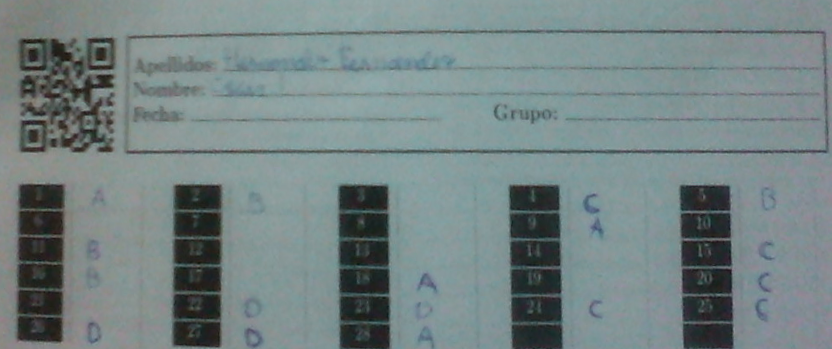 Apellidos: Fernandez
Nombre:
Fecha: Grupo:
1 A 2 B 3 4 C 5 B
6 7 8 9 A 10
11 B 12 13 14 15 C
16 B 17 18 A 19 20 C
21 22 D 23 D 24 C 25 C
26 D 27 D 28 A